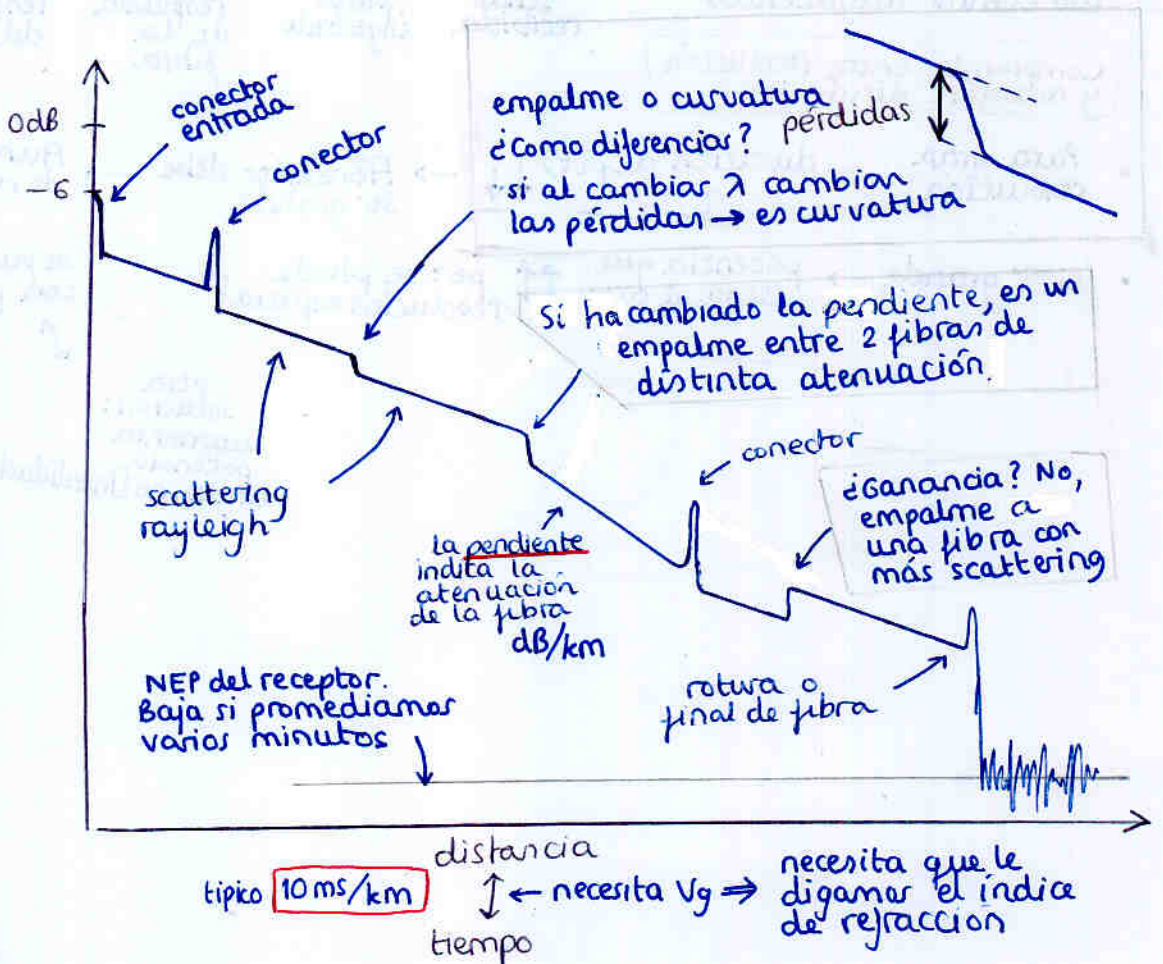 0dB
-6
conector
entrada
conector
empalme o curvatura
¿Como diferenciar?
si al cambiar λ cambian
las pérdidas → es curvatura
pérdidas
Si ha cambiado la pendiente, es un
empalme entre 2 fibras de
distinta atenuación.
scattering
rayleigh
la pendiente
indica la
atenuación
de la fibra
dB/km
conector
¿Ganancia? No,
empalme a
una fibra con
más scattering
NEP del receptor.
Baja si promediamos
varios minutos
rotura o
final de fibra
distancia
tipico 10 ms/km
← necesita Vg ⇒
tiempo
necesita que le
digamos el índice
de refracción